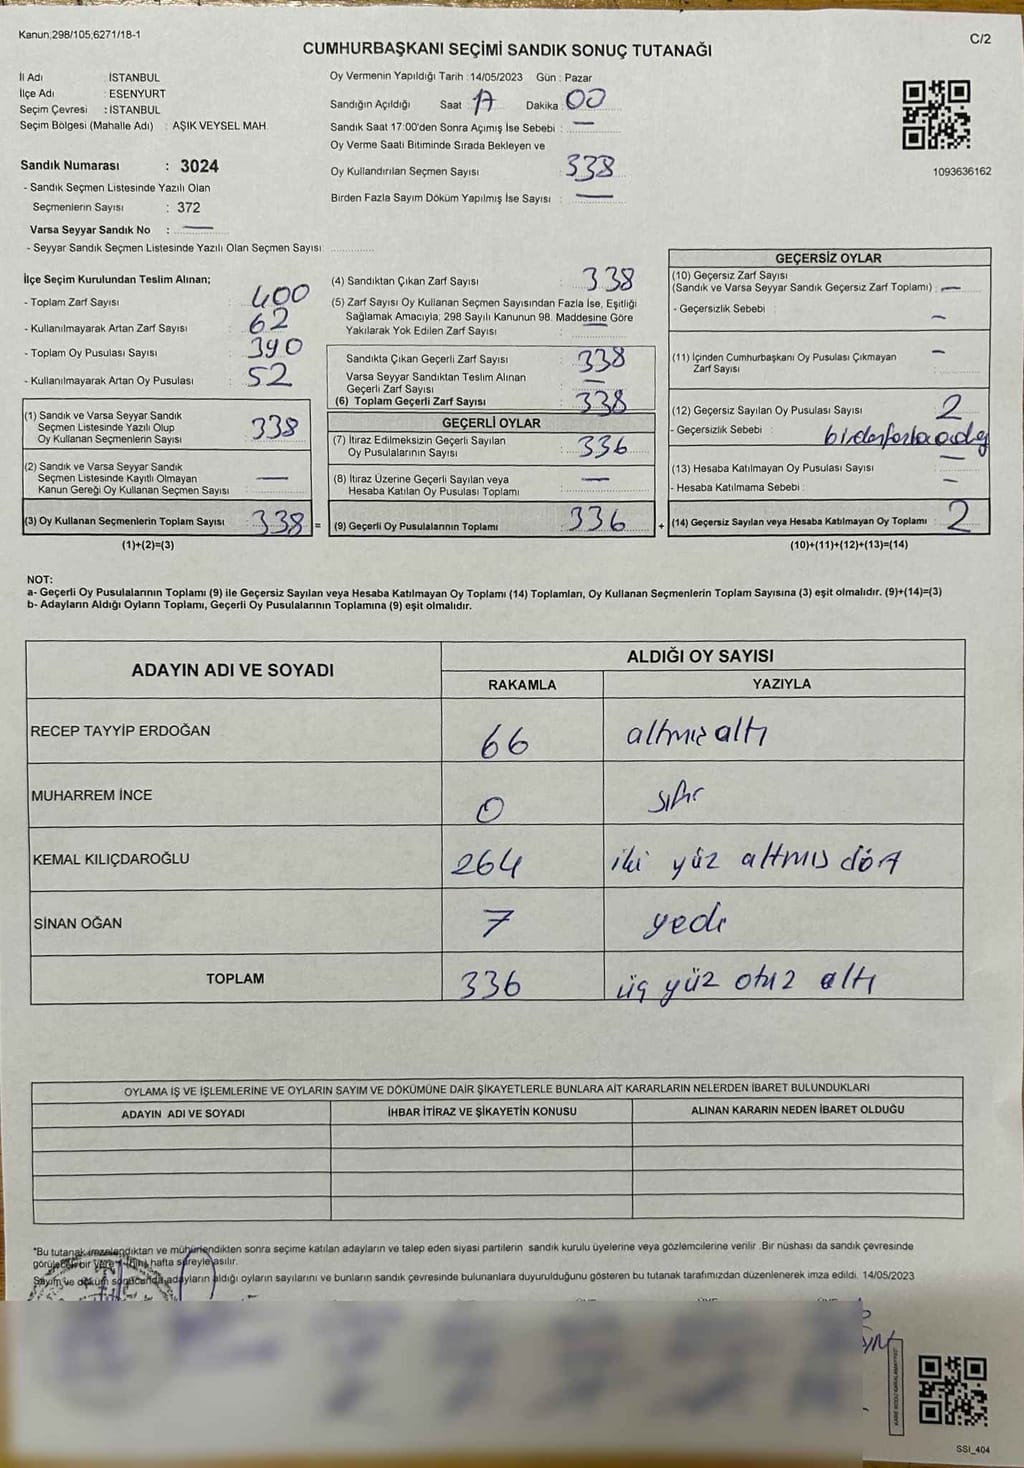 Kanun;298/105,6271/18-1
C/2
CUMHURBAŞKANI SEÇİMİ SANDIK SONUÇ TUTANAĞI
İl Adı : İSTANBUL
İlçe Adı : ESENYURT
Seçim Çevresi : İSTANBUL
Seçim Bölgesi (Mahalle Adı) : AŞIK VEYSEL MAH.
Sandık Numarası : 3024
- Sandık Seçmen Listesinde Yazılı Olan
Seçmenlerin Sayısı : 372
Varsa Seyyar Sandık No : —
- Seyyar Sandık Seçmen Listesinde Yazılı Olan Seçmen Sayısı:
Oy Vermenin Yapıldığı Tarih : 14/05/2023 Gün : Pazar
Sandığın Açıldığı Saat : 17 Dakika : 00
Sandık Saat 17:00'den Sonra Açımış İse Sebebi : —
Oy Verme Saati Bitiminde Sırada Bekleyen ve
Oy Kullandırılan Seçmen Sayısı : 338
Birden Fazla Sayım Döküm Yapılmış İse Sayısı : —
1093636162
İlçe Seçim Kurulundan Teslim Alınan;
- Toplam Zarf Sayısı : 400
- Kullanılmayarak Artan Zarf Sayısı : 62
- Toplam Oy Pusulası Sayısı : 390
- Kullanılmayarak Artan Oy Pusulası : 52
(1) Sandık ve Varsa Seyyar Sandık
Seçmen Listesinde Yazılı Olup
Oy Kullanan Seçmenlerin Sayısı : 338
(2) Sandık ve Varsa Seyyar Sandık
Seçmen Listesinde Kayıtlı Olmayan
Kanun Gereği Oy Kullanan Seçmen Sayısı : —
(3) Oy Kullanan Seçmenlerin Toplam Sayısı : 338 =
(1)+(2)=(3)
(4) Sandıktan Çıkan Zarf Sayısı : 338
(5) Zarf Sayısı Oy Kullanan Seçmen Sayısından Fazla İse, Eşitliği
Sağlamak Amacıyla; 298 Sayılı Kanunun 98. Maddesine Göre
Yakılarak Yok Edilen Zarf Sayısı : —
Sandıkta Çıkan Geçerli Zarf Sayısı : 338
Varsa Seyyar Sandıktan Teslim Alınan
Geçerli Zarf Sayısı : —
(6) Toplam Geçerli Zarf Sayısı : 338
GEÇERLİ OYLAR
(7) İtiraz Edilmeksizin Geçerli Sayılan
Oy Pusulalarının Sayısı : 336
(8) İtiraz Üzerine Geçerli Sayılan veya
Hesaba Katılan Oy Pusulası Toplamı : —
(9) Geçerli Oy Pusulalarının Toplamı : 336 +
GEÇERSİZ OYLAR
(10) Geçersiz Zarf Sayısı
(Sandık ve Varsa Seyyar Sandık Geçersiz Zarf Toplamı) : —
- Geçersizlik Sebebi : —
(11) İçinden Cumhurbaşkanı Oy Pusulası Çıkmayan
Zarf Sayısı : —
(12) Geçersiz Sayılan Oy Pusulası Sayısı : 2
- Geçersizlik Sebebi : birdenfazla
(13) Hesaba Katılmayan Oy Pusulası Sayısı : —
- Hesaba Katılmama Sebebi : —
(14) Geçersiz Sayılan veya Hesaba Katılmayan Oy Toplamı : 2
(10)+(11)+(12)+(13)=(14)
NOT:
a- Geçerli Oy Pusulalarının Toplamı (9) ile Geçersiz Sayılan veya Hesaba Katılmayan Oy Toplamı (14) Toplamları, Oy Kullanan Seçmenlerin Toplam Sayısına (3) eşit olmalıdır. (9)+(14)=(3)
b- Adayların Aldığı Oyların Toplamı, Geçerli Oy Pusulalarının Toplamına (9) eşit olmalıdır.
ADAYIN ADI VE SOYADI
ALDIĞI OY SAYISI
RAKAMLA YAZIYLA
RECEP TAYYİP ERDOĞAN 66 altmış altı
MUHARREM İNCE 0 sıfır
KEMAL KILIÇDAROĞLU 264 iki yüz altmış dört
SİNAN OĞAN 7 yedi
TOPLAM 336 üç yüz otuz altı
OYLAMA İŞ VE İŞLEMLERİNE VE OYLARIN SAYIM VE DÖKÜMÜNE DAİR ŞİKAYETLERLE BUNLARA AİT KARARLARIN NELERDEN İBARET BULUNDUKLARI
ADAYIN ADI VE SOYADI İHBAR İTİRAZ VE ŞİKAYETİN KONUSU ALINAN KARARIN NEDEN İBARET OLDUĞU
*Bu tutanak imzalandıktan ve mühürlendikten sonra seçime katılan adayların ve talep eden siyasi partilerin sandık kurulu üyelerine veya gözlemcilerine verilir. Bir nüshası da sandık çevresinde
görülecek bir yere hafta süreyle asılır.
Sayım ve döküm sonucunda adayların aldığı oyların sayılarını ve bunların sandık çevresinde bulunanlara duyurulduğunu gösteren bu tutanak tarafımızdan düzenlenerek imza edildi. 14/05/2023
SSI_404